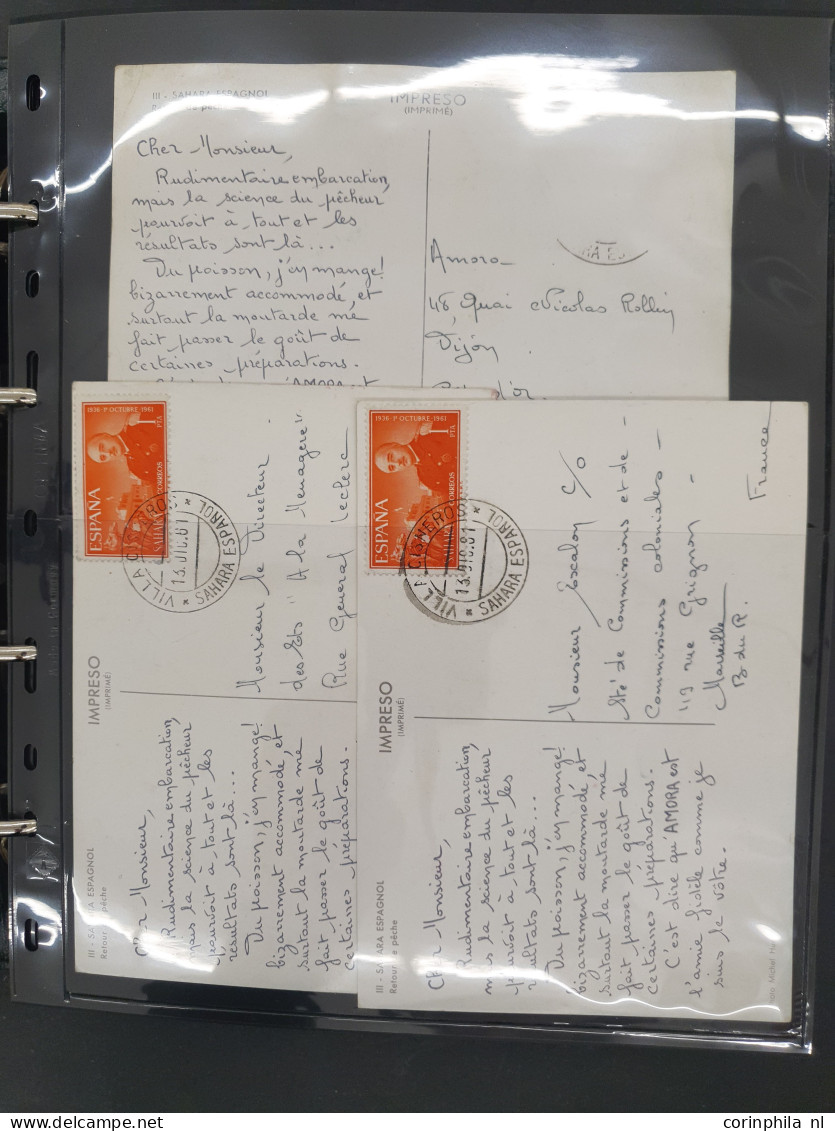 III - SAHARA ESPAGNOL
IMPRESO
(IMPRIMÉ)
Cher Monsieur,
Rudimentaire embarcation,
mais la science du pêcheur
pourvoit à tout et les
résultats sont là...
Du poisson, j'en mange!
bizarrement accommodé, et
surtout la moutarde me
fait passer le goût de
certaines préparations.
Amora
48, Quai Nicolas Rollin
Dijon
III - SAHARA ESPAGNOL
Retour de pêche
IMPRESO
(IMPRIMÉ)
Cher Monsieur,
Rudimentaire embarcation,
mais la science du pêcheur
pourvoit à tout et les
résultats sont là...
Du poisson, j'en mange!
bizarrement accommodé, et
surtout la moutarde me
fait passer le goût de
certaines préparations.
1936 - 1º OCTUBRE 1961
1
PTA
ESPAÑA
CORREOS
VILLA CISNEROS
13.DIC.61
* SAHARA ESPAÑOL *
Monsieur le Directeur
des Ets "A la Menagère"
Rue General Leclerc
III - SAHARA ESPAGNOL
Retour de pêche
IMPRESO
(IMPRIMÉ)
Cher Monsieur,
Rudimentaire embarcation,
mais la science du pêcheur
pourvoit à tout et les
résultats sont là...
Du poisson, j'en mange!
bizarrement accommodé et
surtout la moutarde me
fait passer le goût de
certaines préparations.
C'est dire qu'AMORA est
l'amie fidèle comme je
suis le vôtre.
1936 - 1º OCTUBRE 1961
1
PTA
ESPAÑA
CORREOS
VILLA CISNEROS
13.DIC.61
* SAHARA ESPAÑOL *
Monsieur Escalon c/o
Sté de Commissions et de
Commissions coloniales -
19 rue Grignon -
Marseille
B du R.
France
corinphila nl